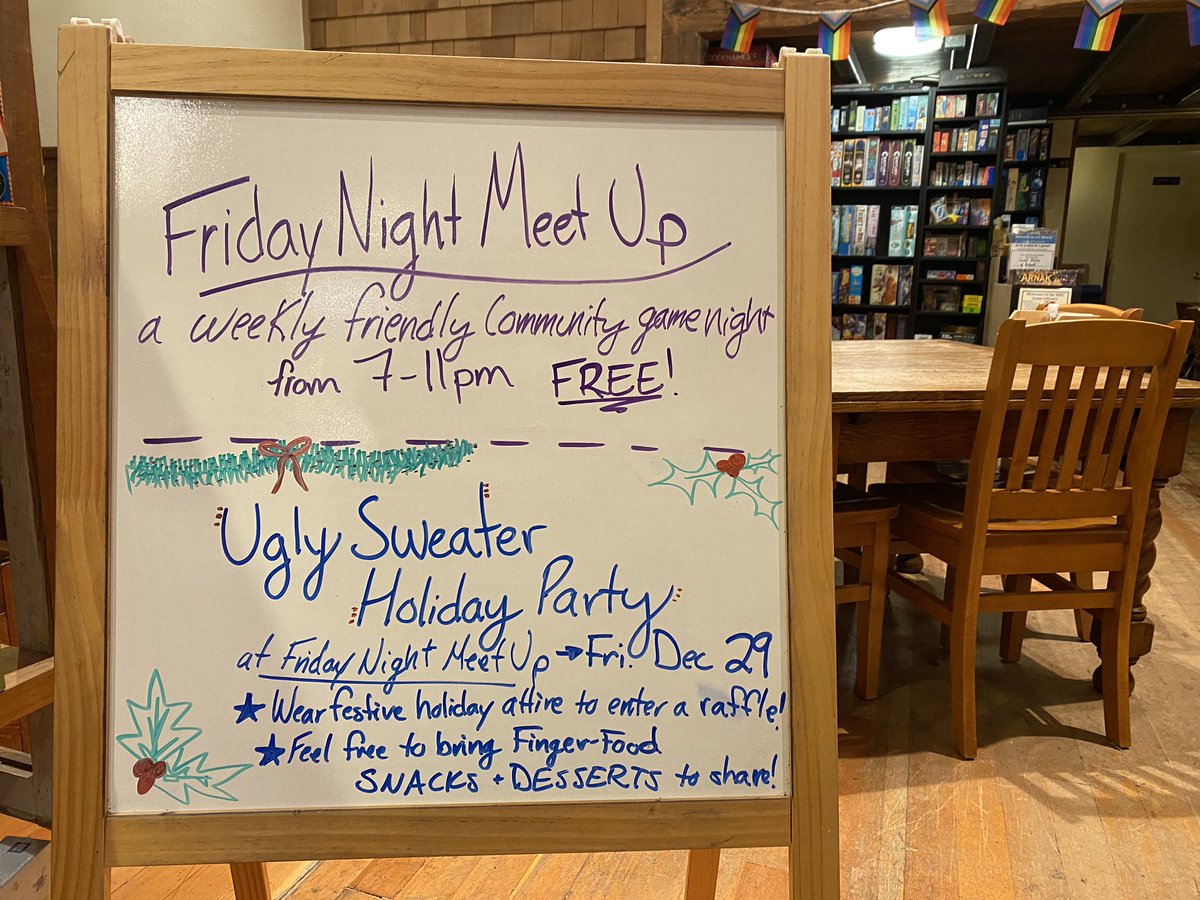 Friday Night Meet Up
a weekly friendly Community game night
from 7-11pm FREE!
Ugly Sweater
Holiday Party
at Friday Night Meet Up → Fri. Dec 29
★ Wear festive holiday attire to enter a raffle!
★ Feel free to bring Finger-Food
SNACKS + DESSERTS to share!
CODENAMES
ARNAK